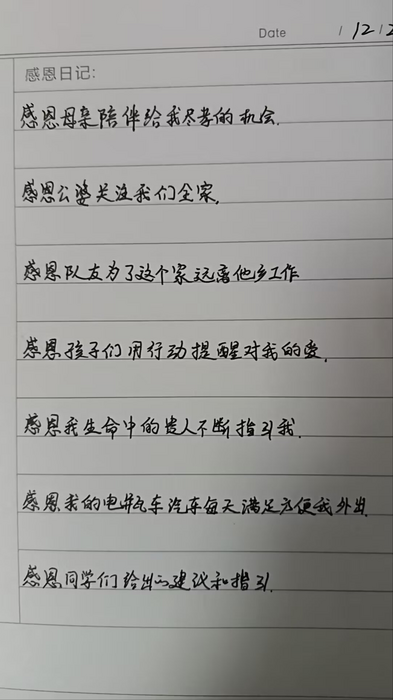 Date / 12/2
感恩日记:
感恩母亲陪伴给我尽孝的机会.
感恩公婆关注我们全家.
感恩队友为了这个家远离他乡工作
感恩孩子们用行动提醒对我的爱.
感恩我生命中的贵人不断指引我.
感恩我的电瓶车汽车每天满足方便我外出.
感恩同学们给出的建议和指引.